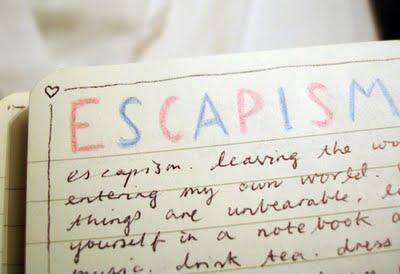 ESCAPISM
escapism. leaving the
entering my own world.
things are unbearable.
yourself in a notebook
music. drink tea. dress